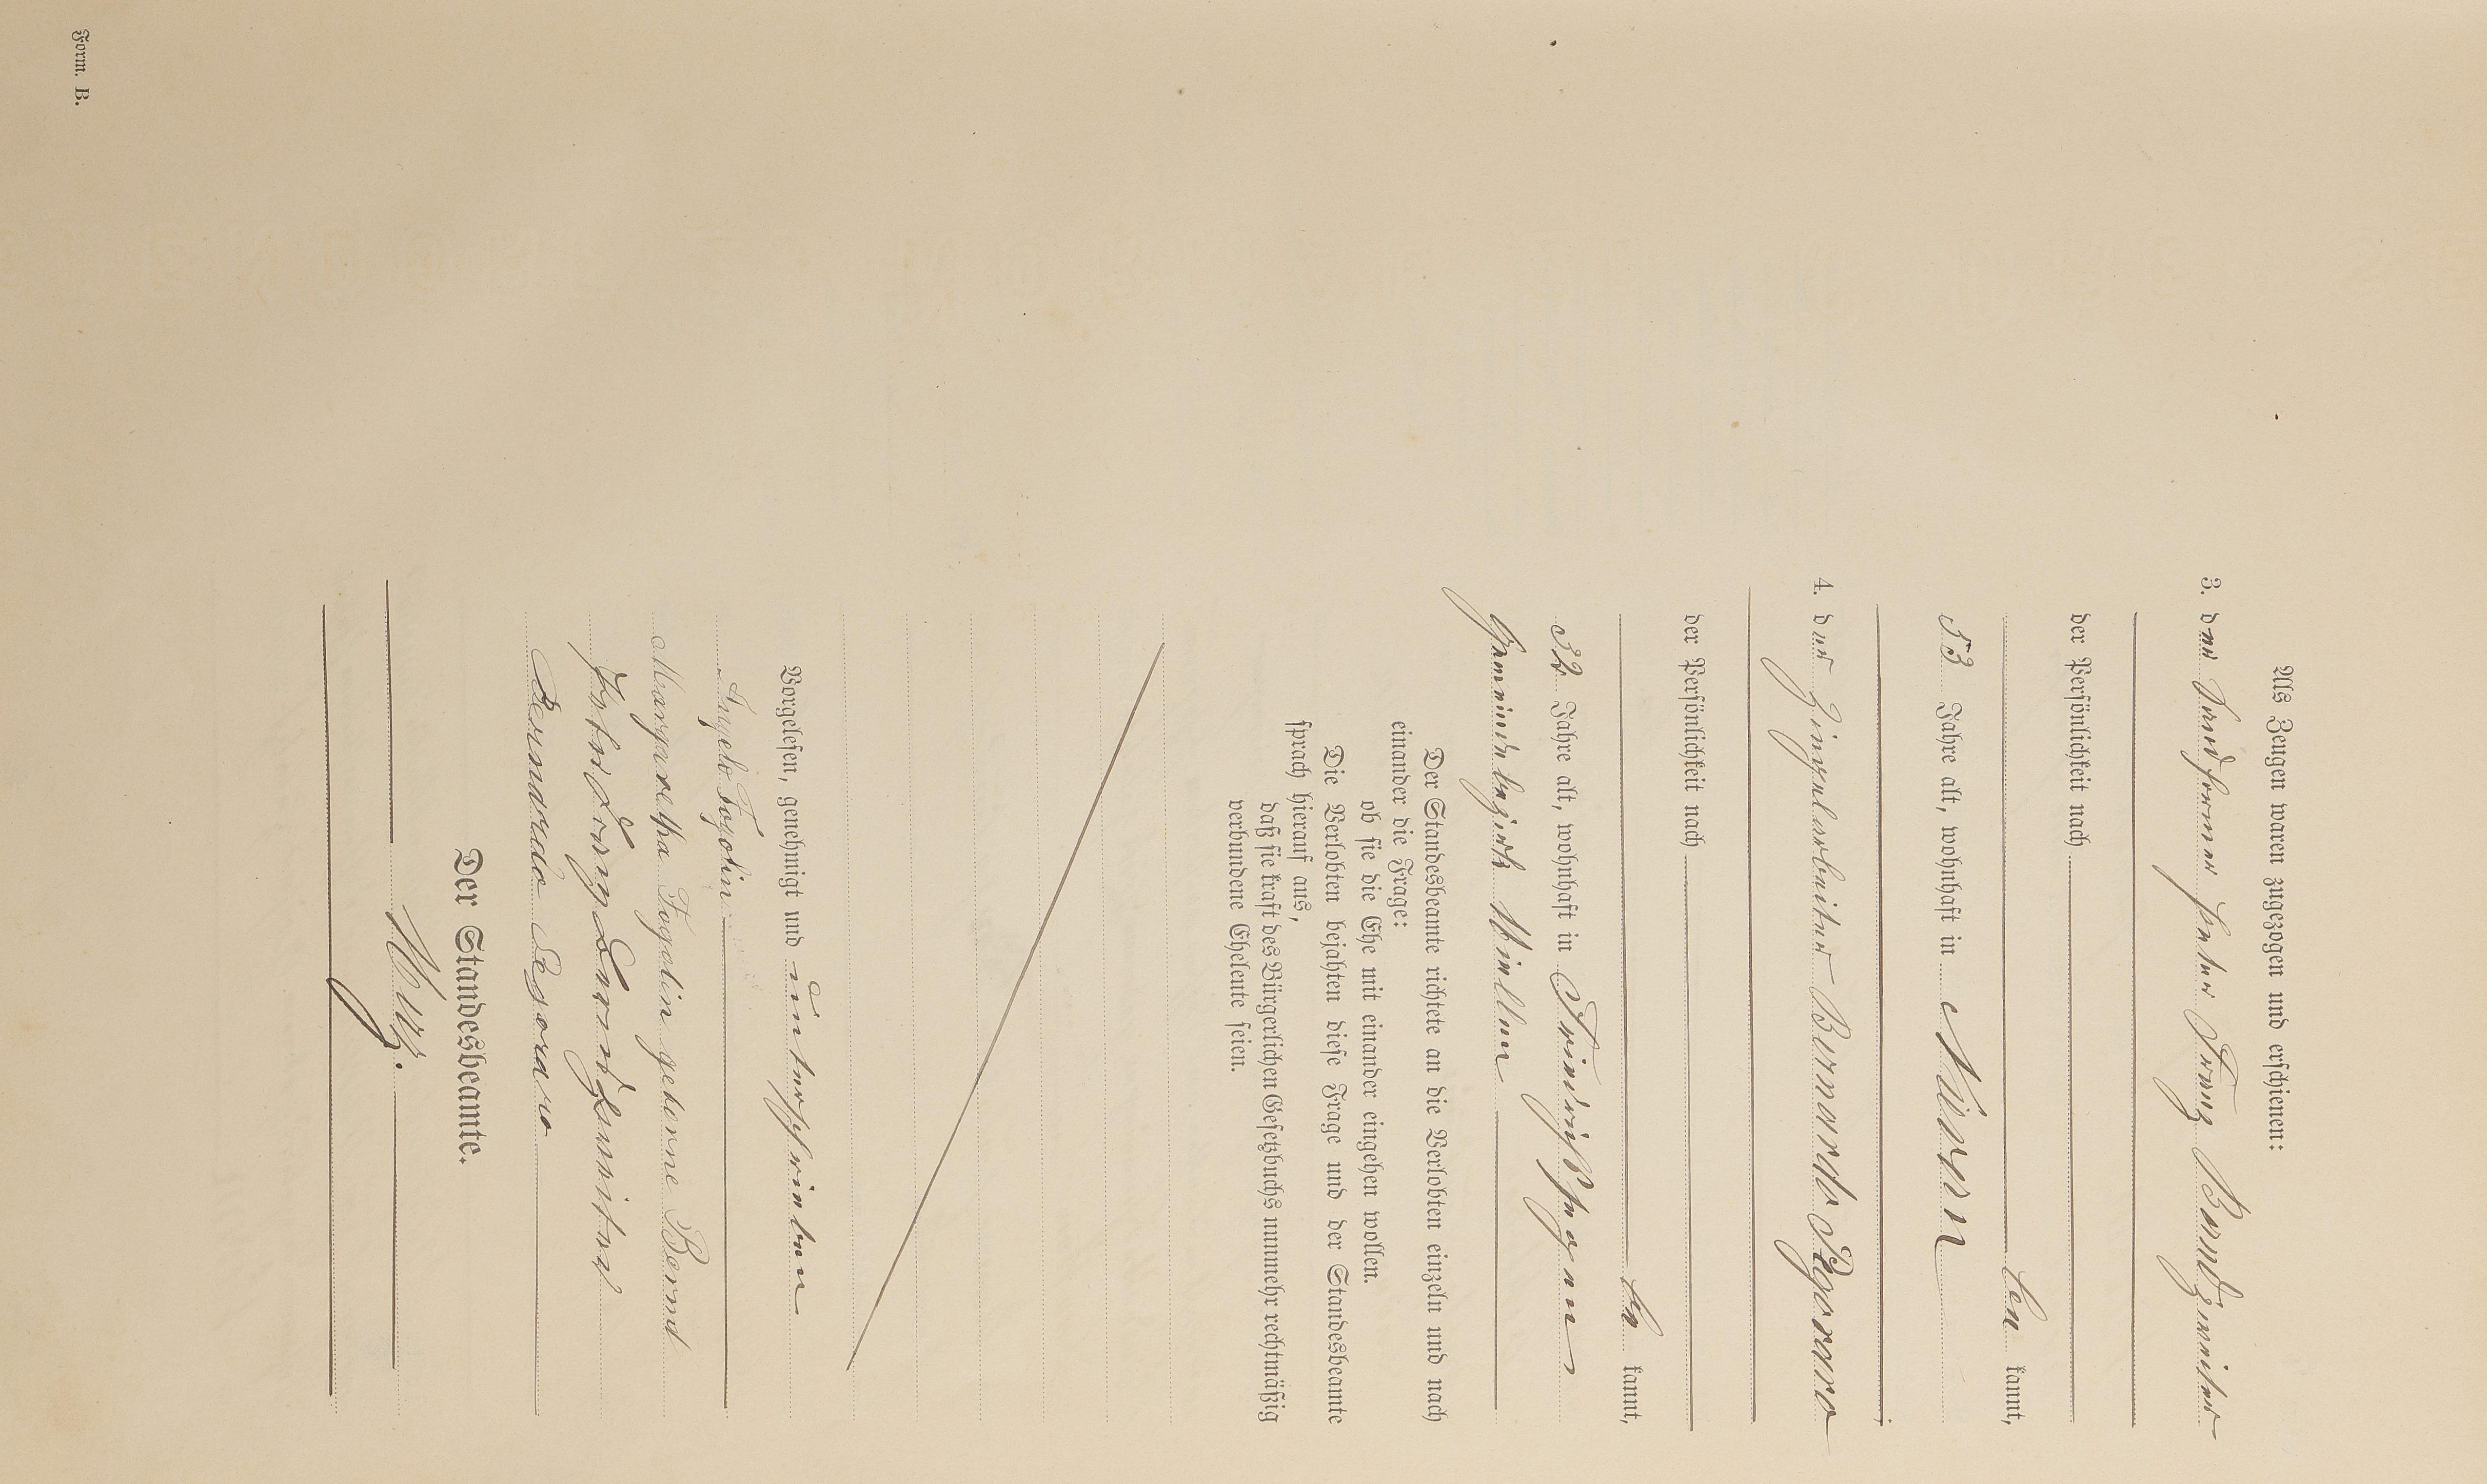 Als Zeugen waren zugezogen und erschienen:
3. der Sandformer Peter Franz
der Persönlichkeit nach
kannt,
53 Jahre alt, wohnhaft in
4. der Ziegelarbeiter Bernardo Pegoraro
der Persönlichkeit nach
be kannt,
32 Jahre alt, wohnhaft in
Gemeindebezirk
Der Standesbeamte richtete an die Verlobten einzeln und nach
einander die Frage:
ob sie die Ehe mit einander eingehen wollen.
Die Verlobten bejahten diese Frage und der Standesbeamte
sprach hierauf aus,
daß sie kraft des Bürgerlichen Gesetzbuchs nunmehr rechtmäßig
verbundene Eheleute seien.
Vorgelesen, genehmigt und unterschrieben
Angelo Fogolin
Margaretha Fogolin geborne Bernd
Peter Franz
Bernardo Pegoraro
Der Standesbeamte.
Form. B.